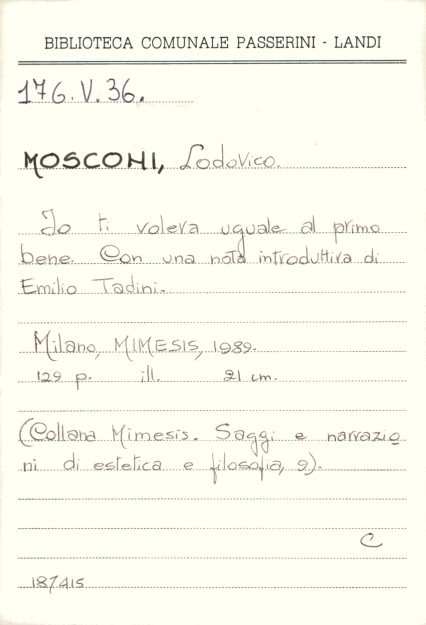 BIBLIOTECA COMUNALE PASSERINI - LANDI
176.V.36.
MOSCONI, Lodovico.
Io ti voleva uguale al primo
bene. Con una nota introduttiva di
Emilio Tadini.
Milano, MIMESIS, 1989.
129 p. ill. 21 cm.
(Collana Mimesis. Saggi e narrazio
ni di estetica e filosofia, 9).
C
187415